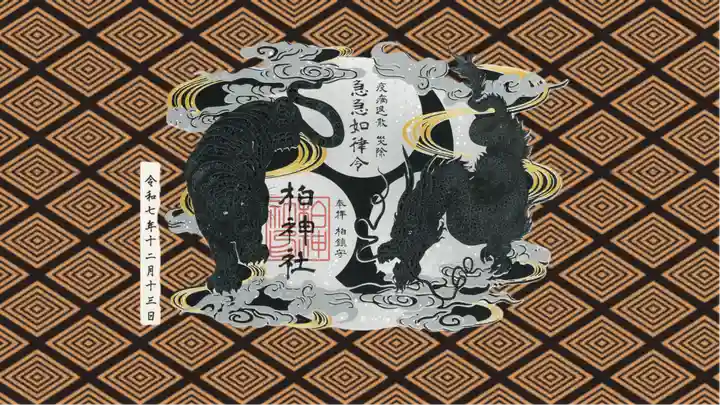 疫病退散 災除
急急如律令
奉拝 柏鎮守
柏神社
令和七年十二月十三日